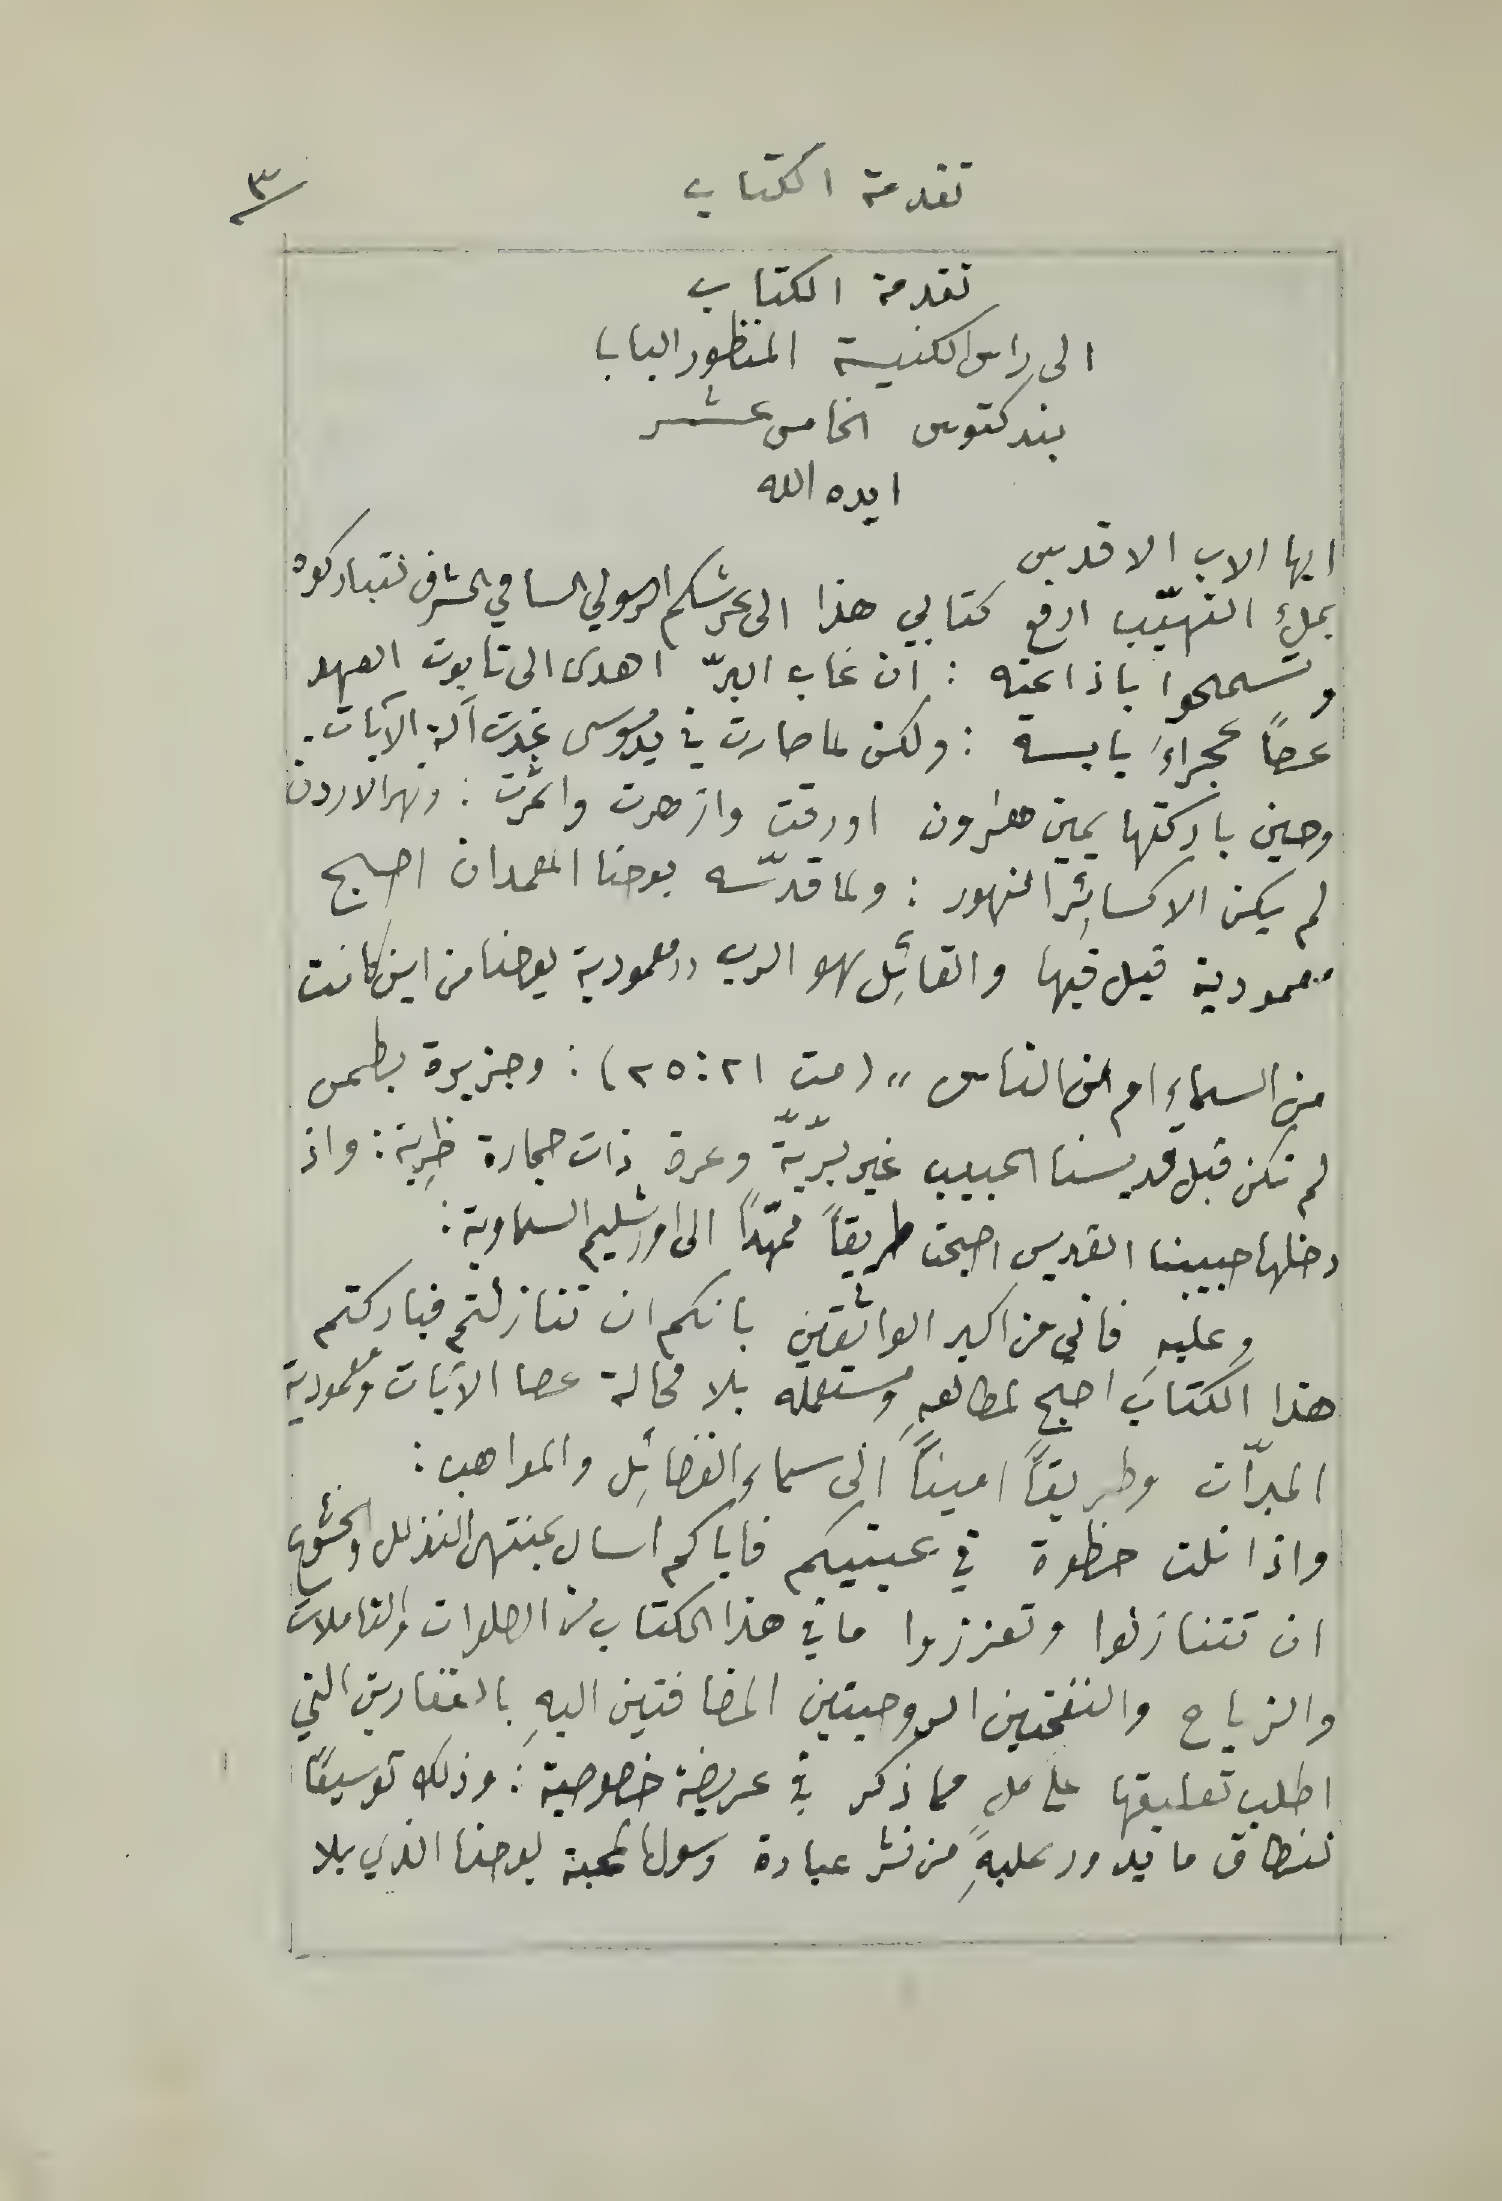 تقدمة الكتاب
٣
تقدمة الكتاب
الى راس الكنيسة المنظور البابا
بندكتوس الخامس عشر
ايده الله
ايها الاب الاقدس
بملءِ التهيّب ارفع كتابي هذا الى عرشكم الرسولي السامي الشرف لتباركوه
وتسمحوا باذاعته : ان غاب البرّ اهدى الى تابوت العهد
عصاً عجراءَ يابسة : ولكن لما صارت في يد موسى غدت آلة الآيات .
وحين باركتها يمين هرون اورقت وازهرت واثمرت : ونهر الاردن
لم يكن الا كسائِر النهور : ولما قدّسه يوحنا المعمدان اصبح
معمودية قيل فيها والقائِل هو الرب "معمودية يوحنا من اين كانت
من السماءِ ام من الناس" (مت ٢١:٢٥) : وجزيرة بطمس
لم تكن قبل قديسنا الحبيب غير برّيّة وعرة ذات حجارة ظرِية : واذ
دخلها حبيبنا القديس اصبحت طريقاً ممهّداً الى اورشليم السماوية :
وعليهِ فاني من اكبر الواثقين بانكم ان تنازلتم فباركتم
هذا الكتابَ اصبح لمطالعهِ ومستعمله بلا محالة عصا الآيات ومعمودية
المبرّات وطريقاً اميناً الى سماءِ الفضائِل والمواهب :
واذا نلت حظوة في عينيكم فاياكم اسال بمنتهى التذلل والخشوع
ان تتنازلوا وتعززوا ما في هذا الكتاب من الصلوات والتاملات
والزياح والنفحتين الروحيتين المضافتين اليهِ بالغفارين التي
اطلب تعليقها على كلٍ مما ذكر في عريضة خصوصية : وذلك توسيعًا
لنطاق ما يدور عليهِ من نشر عبادة رسول المحبة يوحنا الذي بلا